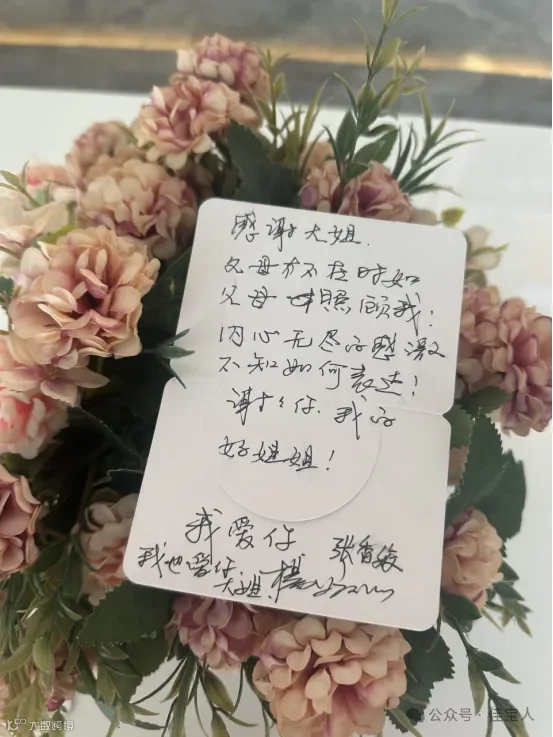 感谢大姐.
父母亦不在时如
父母一样照顾我!
内心无尽的感激
不知如何表达!
谢谢你.我的
好姐姐!
我爱你 张香
我也爱你.
大姐.
公众号·佳宝人
大数跨境